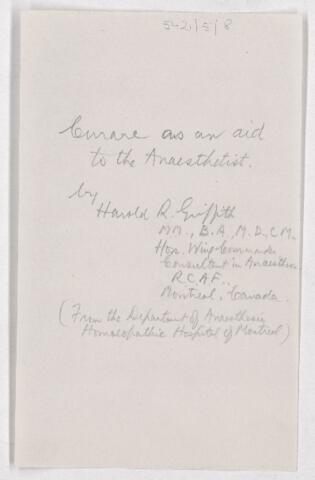 542/5/8
Curare as an aid
to the Anaesthetist.
by
Harold R. Griffith
M.M., B.A., M.D.C.M.
Hon. Wing Commander
Consultant in Anaesthesia
R.C.A.F..
Montreal, Canada.
(From the Department of Anaesthesia
Homoeopathic Hospital of Montreal)